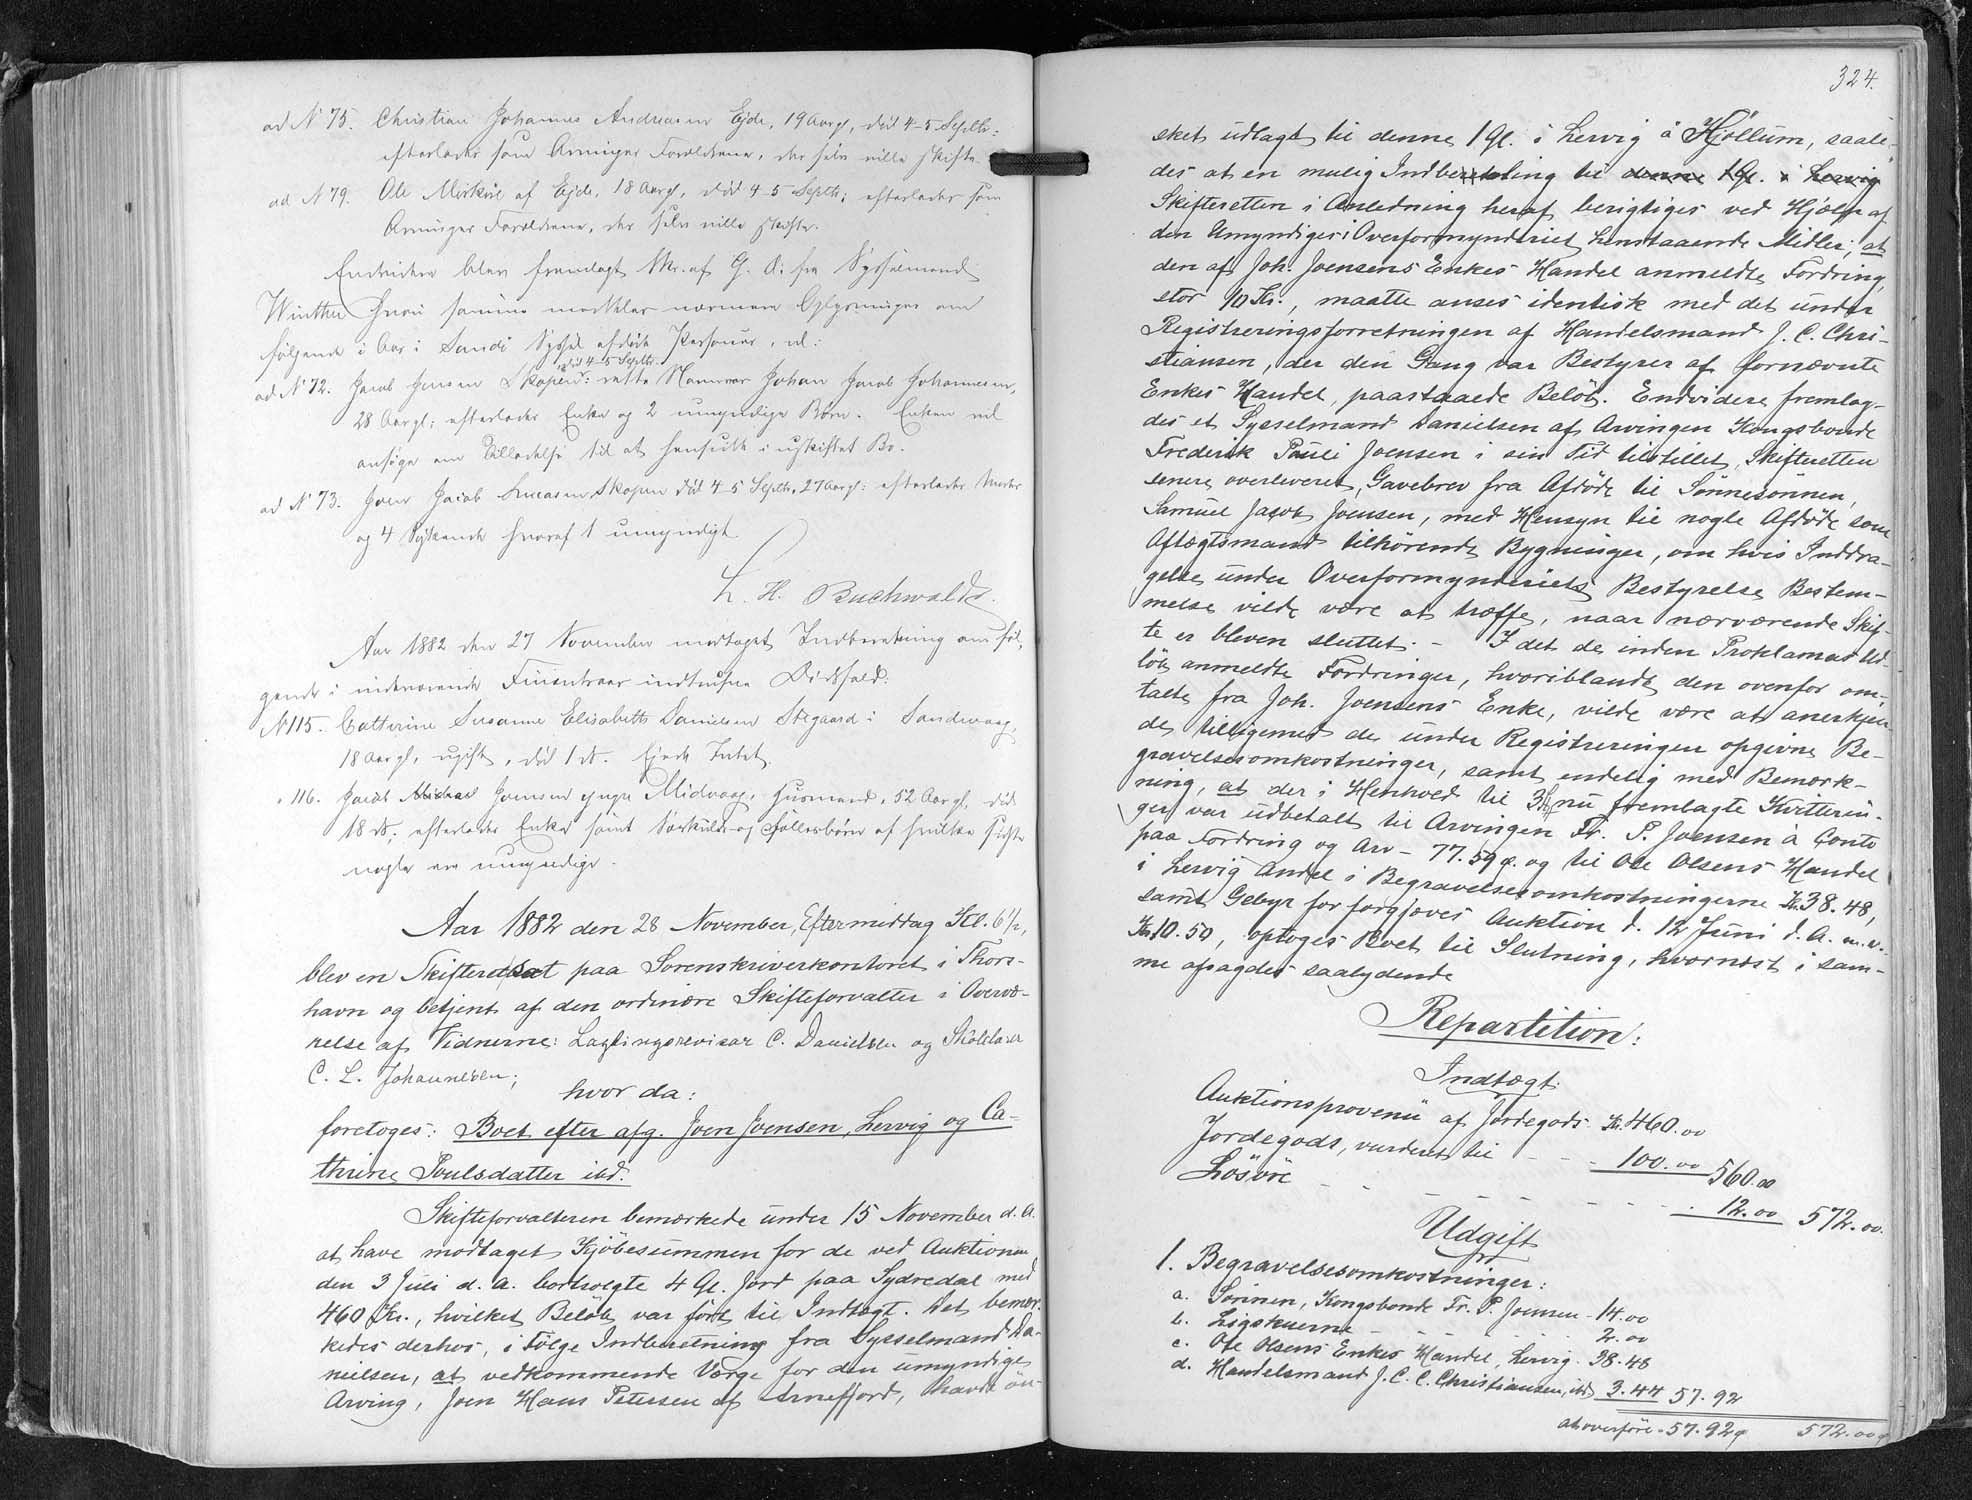 ad N 75. Christian Johannes Andreasen Ejde, 19 Aargl, död 4-5 Septbr:
efterlader som Arvinger Forældrene, der selv ville skifte.
ad N 79. Ole Mörköre af Ejde, 18 Aargl, död 4-5 Septbr; efterlader som
Arvinger Forældrene, der selv ville skifte.
Endvidere blev fremlagt Skr. af G. D. fra Sysselmand
Winther hvori samme meddeler nærmere Oplysninger om
følgende i Aar i Sandö Syssel afdöde Personer, nl:
död 4-5 Septbr.
ad N 72. Jacob Jensen Skopen: rette Navn var Johan Jacob Johannesen,
28 Aargl: efterlader Enke og 2 umyndige Börn. Enken vil
ansöge om Tilladelse til at hensidde i uskiftet Bo.
ad N 73. Joen Jacob Skopen död 4-5 Septbr, 27 Aargl: efterlader Moder
og 4 Sydskende hvoraf 1 umyndigt
L. H. Buchwaldt.
Aar 1882 den 27 November modtaget Indberetning om föl-
gende i indeværende Finantsaar indtrufne Dödsfald:
N 115. Cathrine Susanne Elisabeth Danielsen Stegaard i Sandevaag,
18 Aargl, ugift, död 1 ds. Ejede Intet.
" 116. Jacob Michael Joensen yngre Midvaag, Husmand, 52 Aargl, död
18 ds; efterlader Enke samt Særkuld- og Fællesbörn af hvilke sidste
nogle ere umyndige.
Aar 1882 den 28 November, Eftermiddag Kl. 6 1/2,
blev en Skifteret sat paa Sorenskriverkontoret i Thors-
havn og betjent af den ordinære Skifteforvalter i Overvæ-
relse af Vidnerne: Lagtingsrevisor C. Danielsen og Skolelærer
C. L. Johannesen;
hvor da:
foretoges: Boet efter afg. Joen Joensen, Lervig og Ca-
thrine Poulsdatter ibd.
Skifteforvalteren bemærkede under 15 November d. A.
at have modtaget Kjöbesummen for de ved Auktionen
den 3 Juli d. A. bortsolgte 4 Gl. Jord paa Sydredal med
460 Kr., hvilket Belöb var fört til Indtægt. Det bemær-
kedes derhos, i Fölge Indberetning fra Sysselmand Da-
nielsen, at vedkommende Værge for den umyndige
Arving, Joen Hans Petersen af Arnefjord, havde ön-
324.
sket udlagt til denne 1 Gl. i Lervig à Hjöllum, saale-
des at en mulig Indbetaling til denne 1 Gl. i Lervig
Skifteretten i Anledning heraf berigtiges ved Hjælp af
den Umyndiges i Overformynderiet henstaaende Midler; at
den af Joh. Joensens Enkes Handel anmeldte Fordring,
stor 10 Kr., maatte anses identisk med det under
Registreringsforretningen af Handelsmand J. C. Chri-
stiansen, der den Gang var Bestyrer af fornævnte
Enkes Handel, paastaaede Belöb. Endvidere fremlag-
des et Sysselmand Danielsen af Arvingen Kongsbonde
Frederik Pauli Joensen i sin Tid tilstillet, Skifteretten
senere overleveret, Gavebrev fra Afdöde til Sönnesönnen,
Samuel Jacob Joensen, med Hensyn til nogle Afdöde som
Aftægtsmand tilhörende Bygninger, om hvis Inddra-
gelse under Overformynderiets Bestyrelse Bestem-
melse vilde være at træffe, naar nærværende Skif-
te er bleven sluttet. – I det de inden Proklamas Ud-
löb anmeldte Fordringer, hvoriblandt den ovenfor om-
talte fra Joh. Joensens Enke, vilde være at anerkjen-
de, tilligemed de under Registreringen opgivne Be-
gravelsesomkostninger, samt endelig med Bemærk-
ning, at der i Henhold til 3de nu fremlagte Kvitterin-
ger var udbetalt til Arvingen Fr. P. Joensen à Conto
paa Fordring og Arv – 77.59 ø. og til Ole Olsens Handel
i Lervig Andel i Begravelsesomkostningerne Kr. 38.48,
samt Gebyr for forgjæves Auktion d. 12 Juni d. A. m.v.
Kr. 10.50, optoges Boet til Slutning, hvornæst i sam-
me afsagdes saalydende
Repartition:
Indtægt.
Auktionsprovenü af Jordegods Kr. 460.00
Jordegods, vurderet til - - - 100.00 560.00
Lösöre - - - - - - - - 12.00 572.00.
Udgift
1. Begravelsesomkostninger:
a. Sönnen, Kongsbonde Fr. P. Joensen - 14.00
b. Ligskuerne - - - - 2.00
c. Ole Olsens Enkes Handel, Lervig - 38.48
d. Handelsmand J. C. C. Christiansen, ibd 3.44 57.92
at overföre - 57.92 ø 572.00 ø